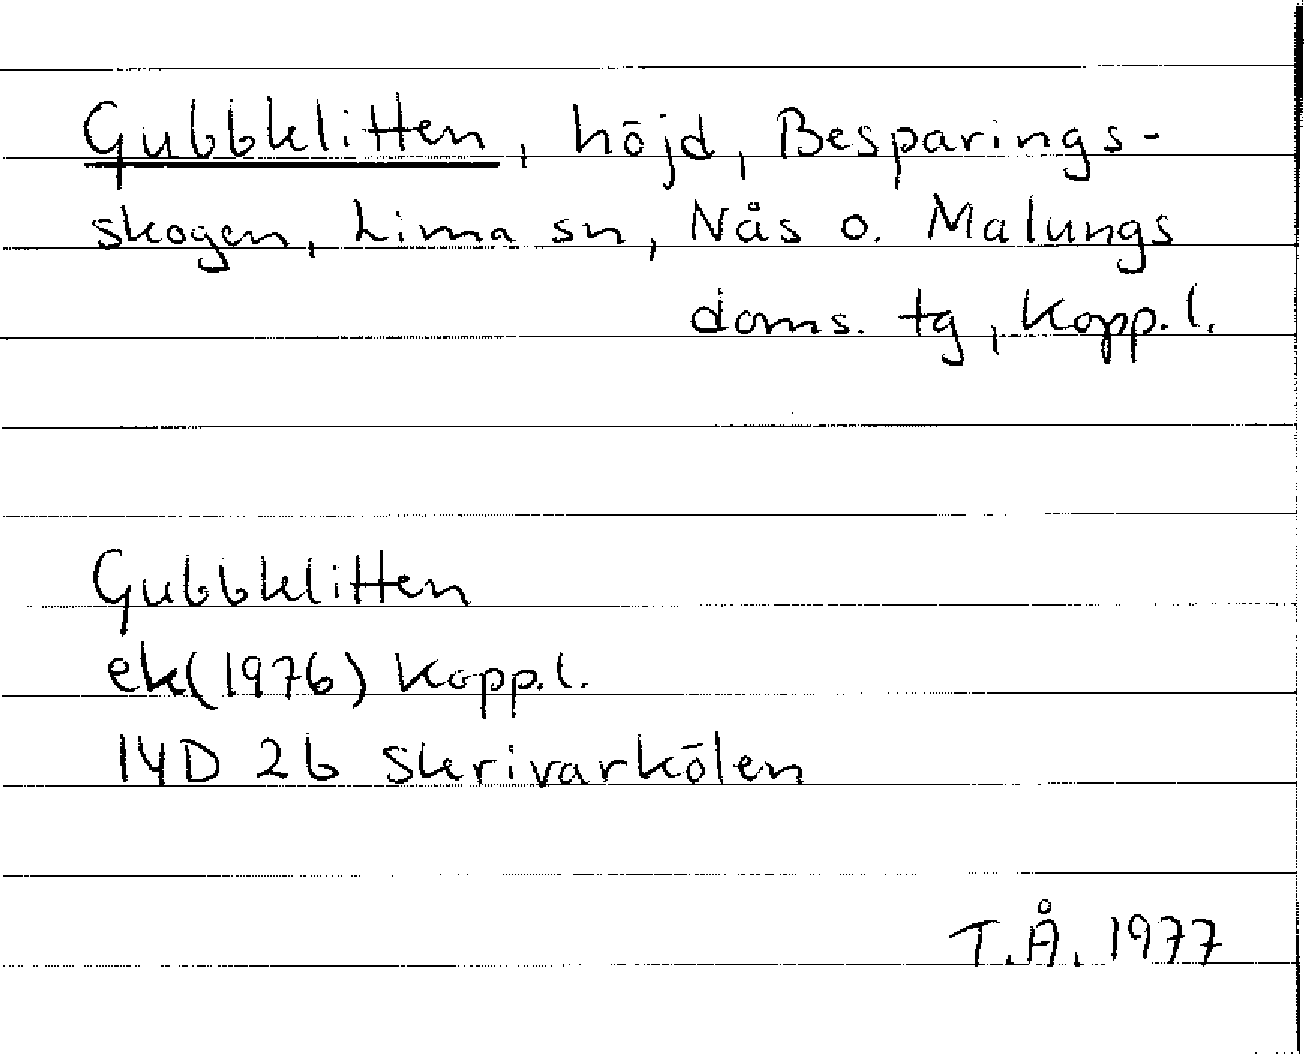 Gubbklitten, höjd, Besparings-
skogen, Lima sn, Nås o. Malungs
doms. tg, Kopp. l.
Gubbklitten
ek(1976) Kopp. l.
14D 2b Skrivarkölen
T.Å. 1977